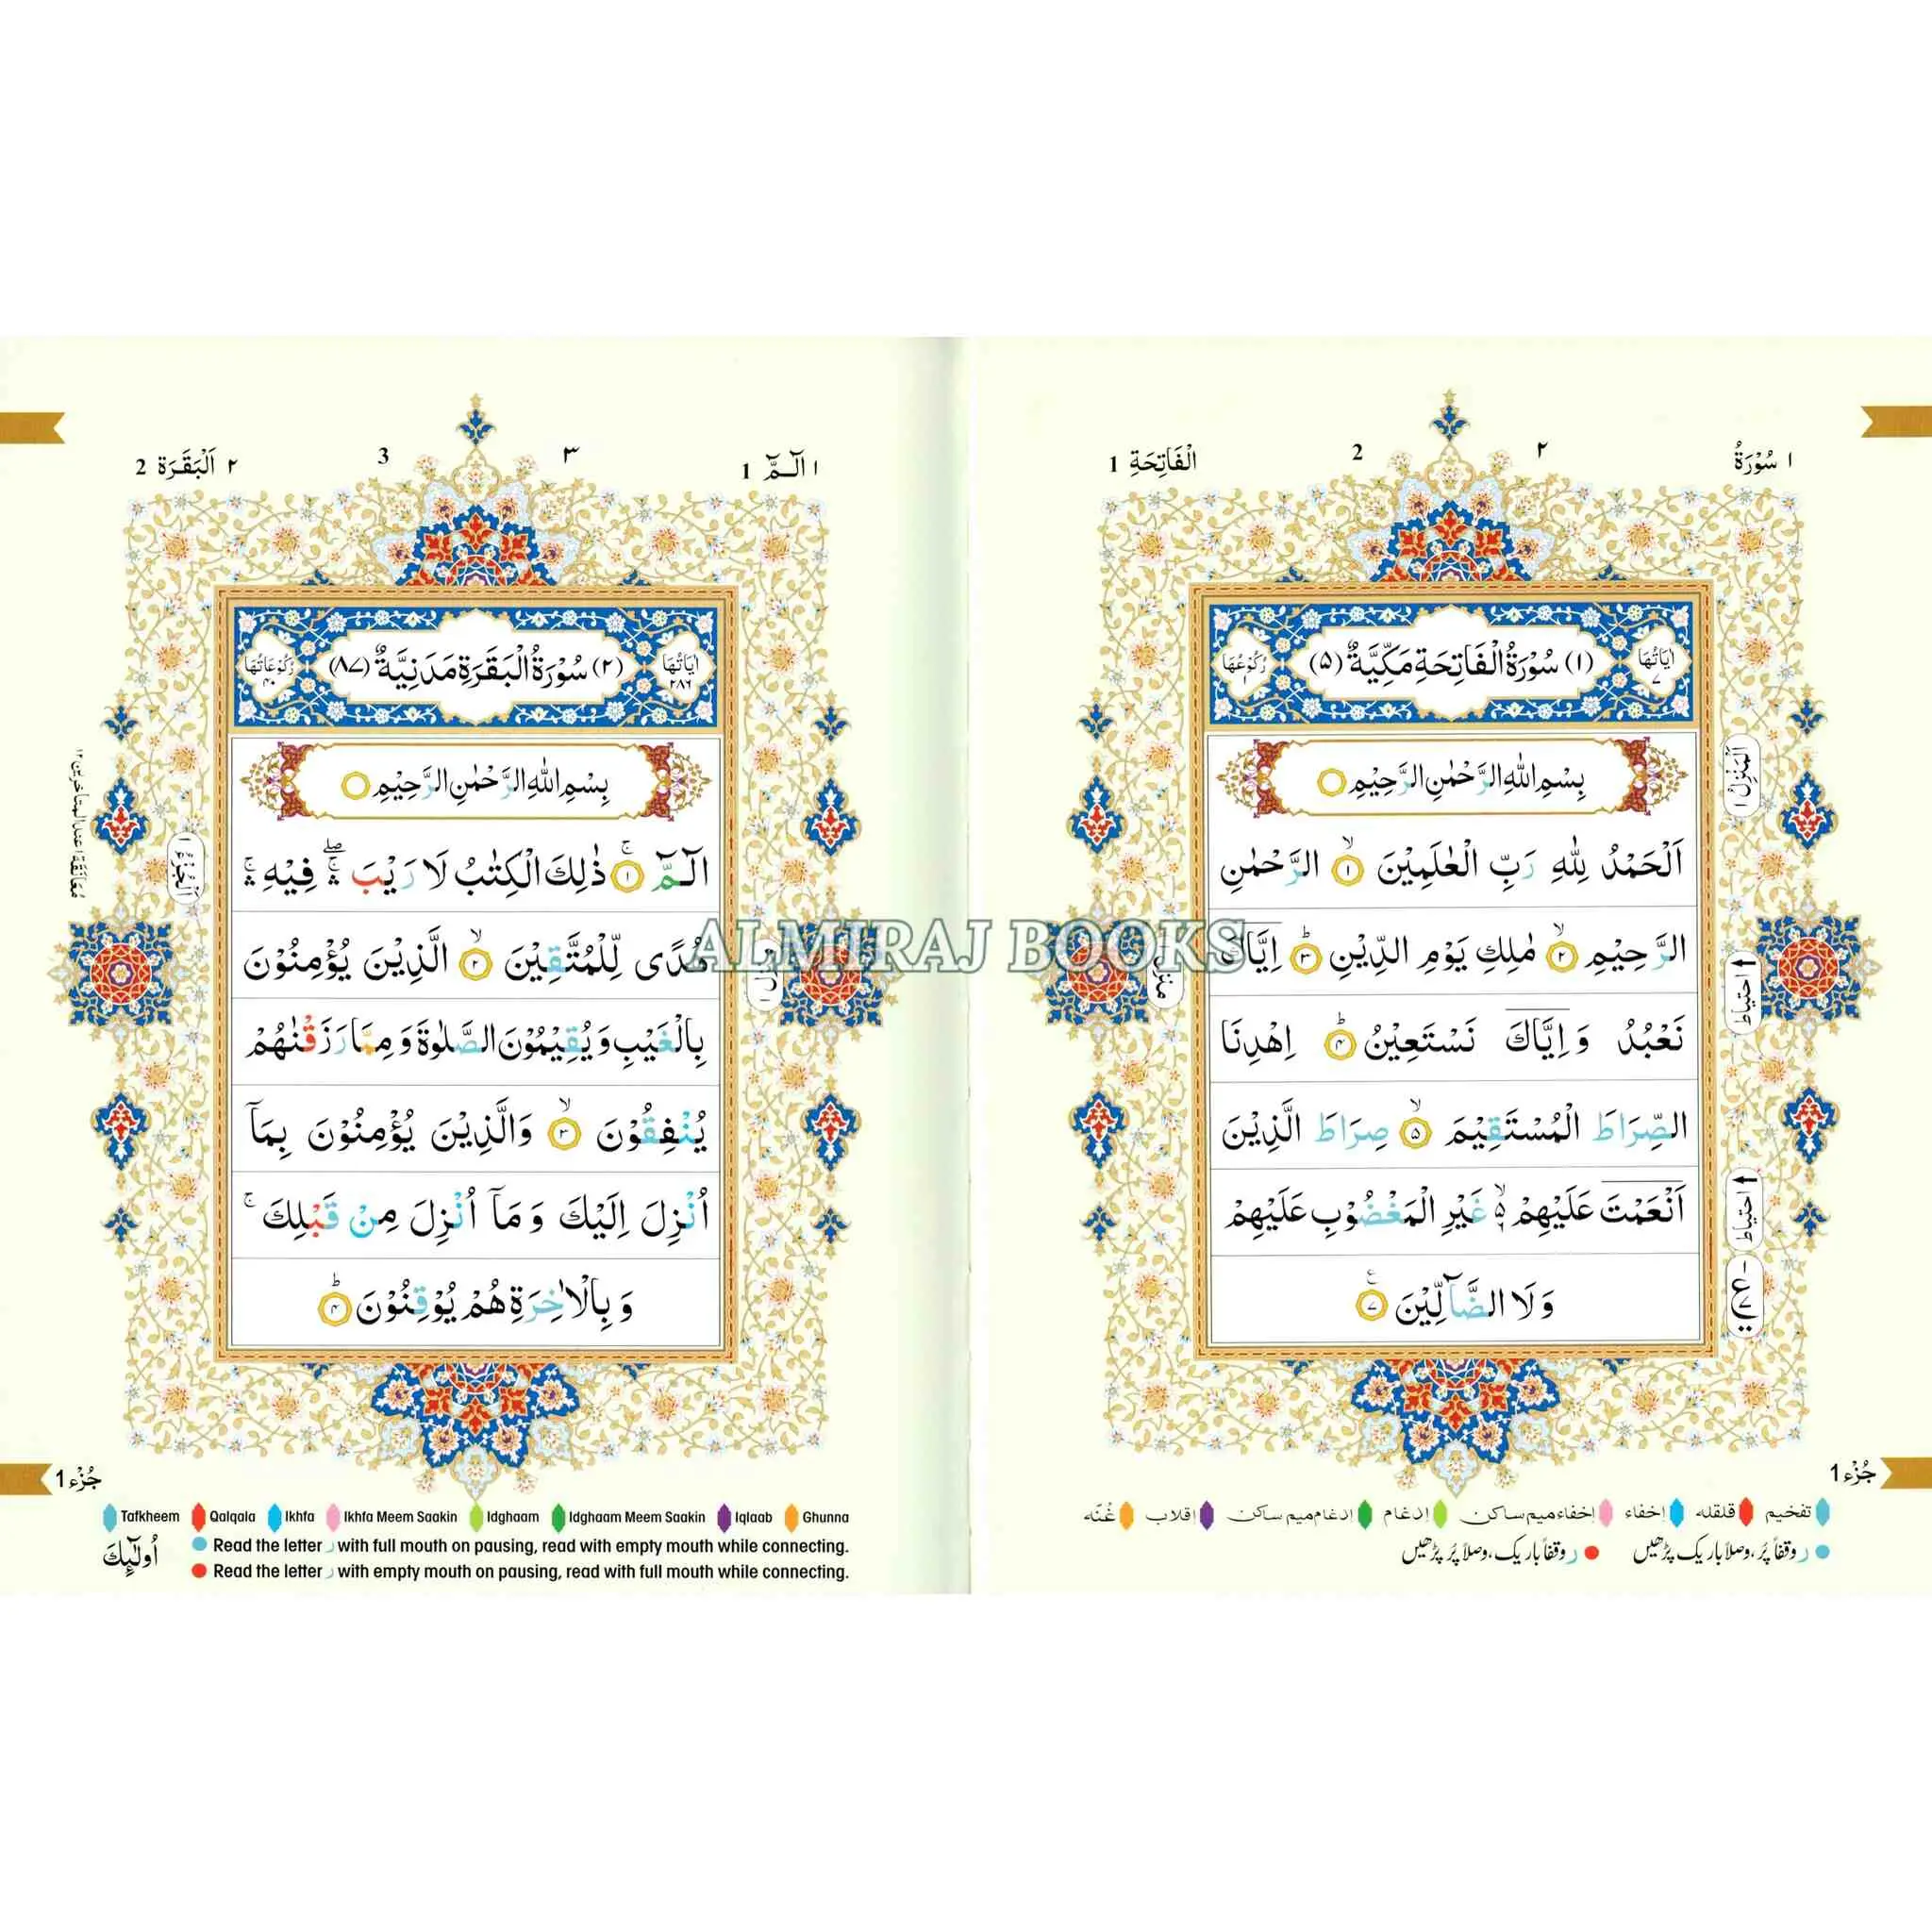 ١ سُوْرَةُ
٢
2
الْفَاتِحَةِ 1
اٰيَاتُهَا ٧
(١) سُوْرَةُ الْفَاتِحَةِ مَكِّيَّةٌ (٥)
رُكُوْعُهَا ١
بِسْمِ اللهِ الرَّحْمٰنِ الرَّحِيْمِ
اَلْحَمْدُ لِلّٰهِ رَبِّ الْعٰلَمِيْنَ ۙ ١ الرَّحْمٰنِ
الرَّحِيْمِ ۙ ٢ مٰلِكِ يَوْمِ الدِّيْنِ ؕ ٣ اِيَّاكَ
نَعْبُدُ وَ اِيَّاكَ نَسْتَعِيْنُ ؕ ٤ اِهْدِنَا
الصِّرَاطَ الْمُسْتَقِيْمَ ۙ ٥ صِرَاطَ الَّذِيْنَ
اَنْعَمْتَ عَلَيْهِمْ ۙ۵ غَيْرِ الْمَغْضُوْبِ عَلَيْهِمْ
وَ لَا الضَّآلِّيْنَ ٧
اَلْمَنْزِلُ ١
احتیاط
احتیاط
منزل
جُزْء 1
تفخیم قلقله إخفاء إخفاء میم ساکن إدغام إدغام میم ساکن إقلاب غُنّه
ر وقفاً پُر، وصلاً باریک پڑھیں ر وقفاً باریک، وصلاً پُر پڑھیں
١ الٓـمّٓ 1
٣
3
٢ اَلْبَقَرَة 2
اٰيَاتُهَا ٢٨٦
(٢) سُوْرَةُ الْبَقَرَةِ مَدَنِيَّةٌ (٨٧)
رُكُوْعَاتُهَا ٤٠
بِسْمِ اللهِ الرَّحْمٰنِ الرَّحِيْمِ
الٓـمّٓ ۚ ١ ذٰلِكَ الْكِتٰبُ لَا رَيْبَ ۛۖۚ فِيْهِ ۛۚ
هُدًى لِّلْمُتَّقِيْنَ ۙ ٢ الَّذِيْنَ يُؤْمِنُوْنَ
بِالْغَيْبِ وَ يُقِيْمُوْنَ الصَّلٰوةَ وَ مِمَّا رَزَقْنٰهُمْ
يُنْفِقُوْنَ ۙ ٣ وَالَّذِيْنَ يُؤْمِنُوْنَ بِمَآ
اُنْزِلَ اِلَيْكَ وَ مَآ اُنْزِلَ مِنْ قَبْلِكَ ۚ
وَ بِالْاٰخِرَةِ هُمْ يُوْقِنُوْنَ ؕ ٤
اَلْجُزْءُ ١
جُزْء 1
Tafkheem Qalqala Ikhfa Ikhfa Meem Saakin Idghaam Idghaam Meem Saakin Iqlaab Ghunna
Read the letter ر with full mouth on pausing, read with empty mouth while connecting.
Read the letter ر with empty mouth on pausing, read with full mouth while connecting.
اُولٰٓئِكَ
ALMIRAJ BOOKS